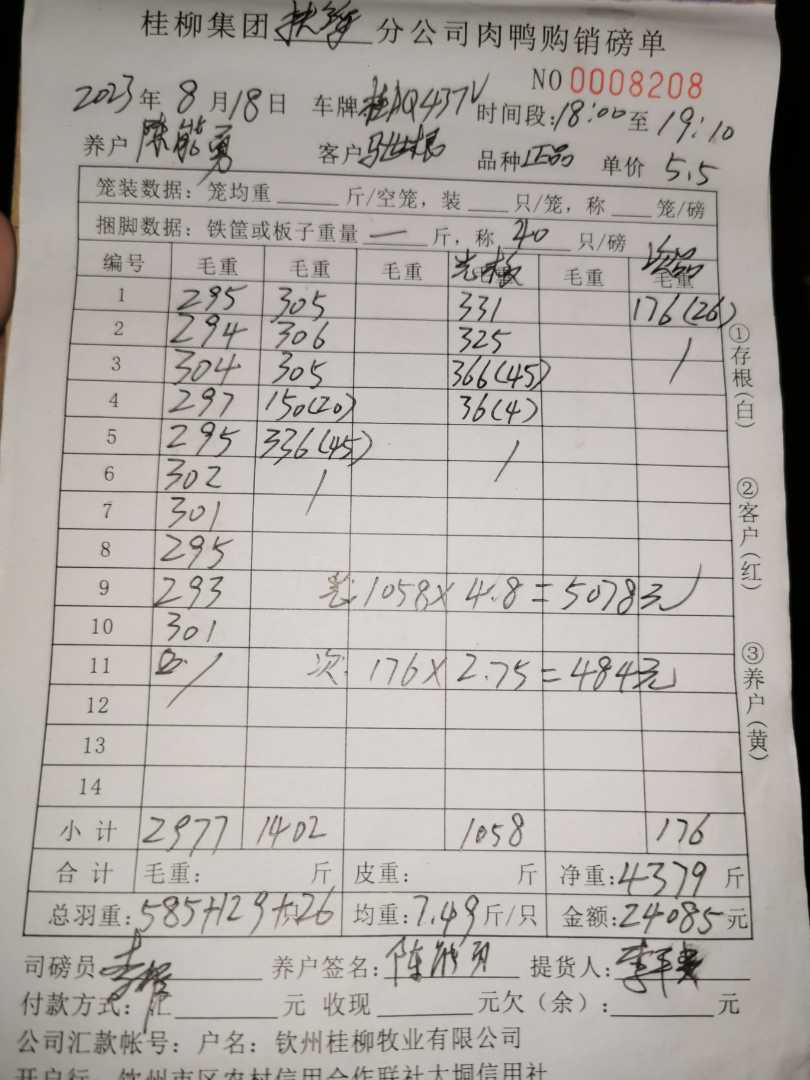 桂柳集团扶绥分公司肉鸭购销磅单
NO 0008208
2023年8月18日 车牌桂AQ437V 时间段:18:00至19:10
养户 陈能勇 客户 马世根 品种正品 单价 5.5
笼装数据: 笼均重 斤/空笼, 装 只/笼, 称 笼/磅
捆脚数据: 铁筐或板子重量 一 斤, 称 40 只/磅
编号 毛重 毛重 毛重 毛重 次品 毛重
1 295 305 331 176(26)
2 294 306 325 /
3 304 305 366(45)
4 297 150(20) 36(4)
5 295 336(45) /
6 302 /
7 301
8 295
9 293 1058×4.8=5078元
10 301
11 / 次: 176×2.75=484元
12
13
14
小计 2977 1402 1058 176
合计 毛重: 斤 皮重: 斤 净重:4379 斤
总羽重:585+129+26 均重:7.49斤/只 金额:24085元
司磅员 养户签名: 陈能勇 提货人:
付款方式: 汇 元 收现 元欠(余): 元
公司汇款帐号: 户名: 钦州桂柳牧业有限公司
开户行 钦州市区农村信用合作联社大垌信用社
①存根(白)
②客户(红)
③养户(黄)